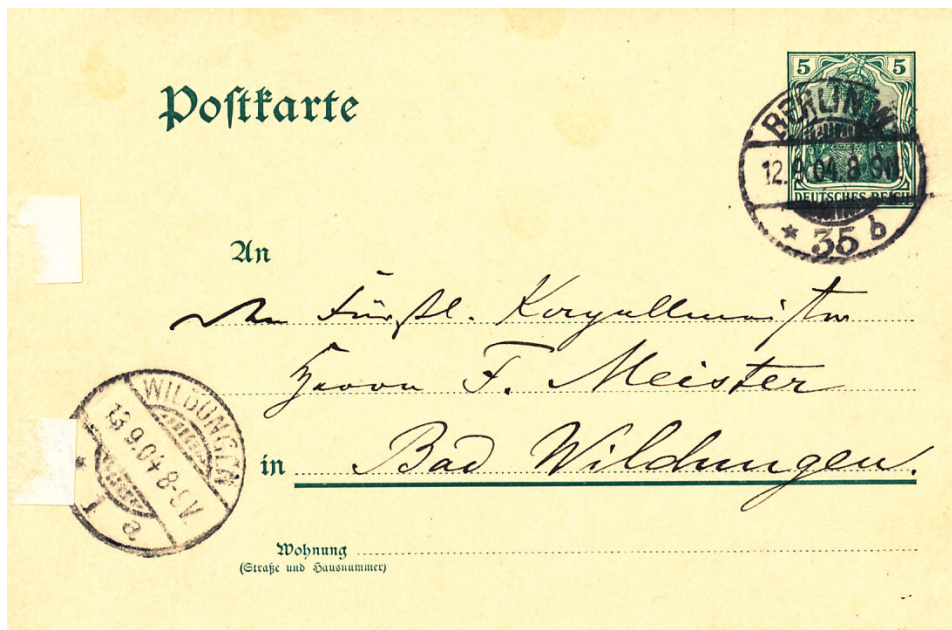 Postkarte
5 5
DEUTSCHES REICH
BERLIN.W.
12.9.04.8-9V.
* 35 b
An
den Fürstl. Kapellmeister
Herrn F. Meister
in Bad Wildungen.
WILDUNGEN
13.9.04.8-9V.
* 1 a
Wohnung
(Straße und Hausnummer)